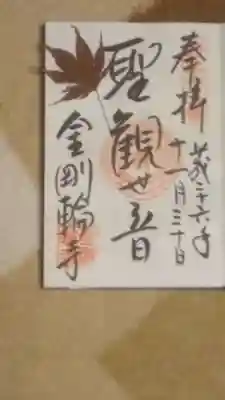 奉拝
平成二十六年
十一月三十日
聖観世音
金剛輪寺